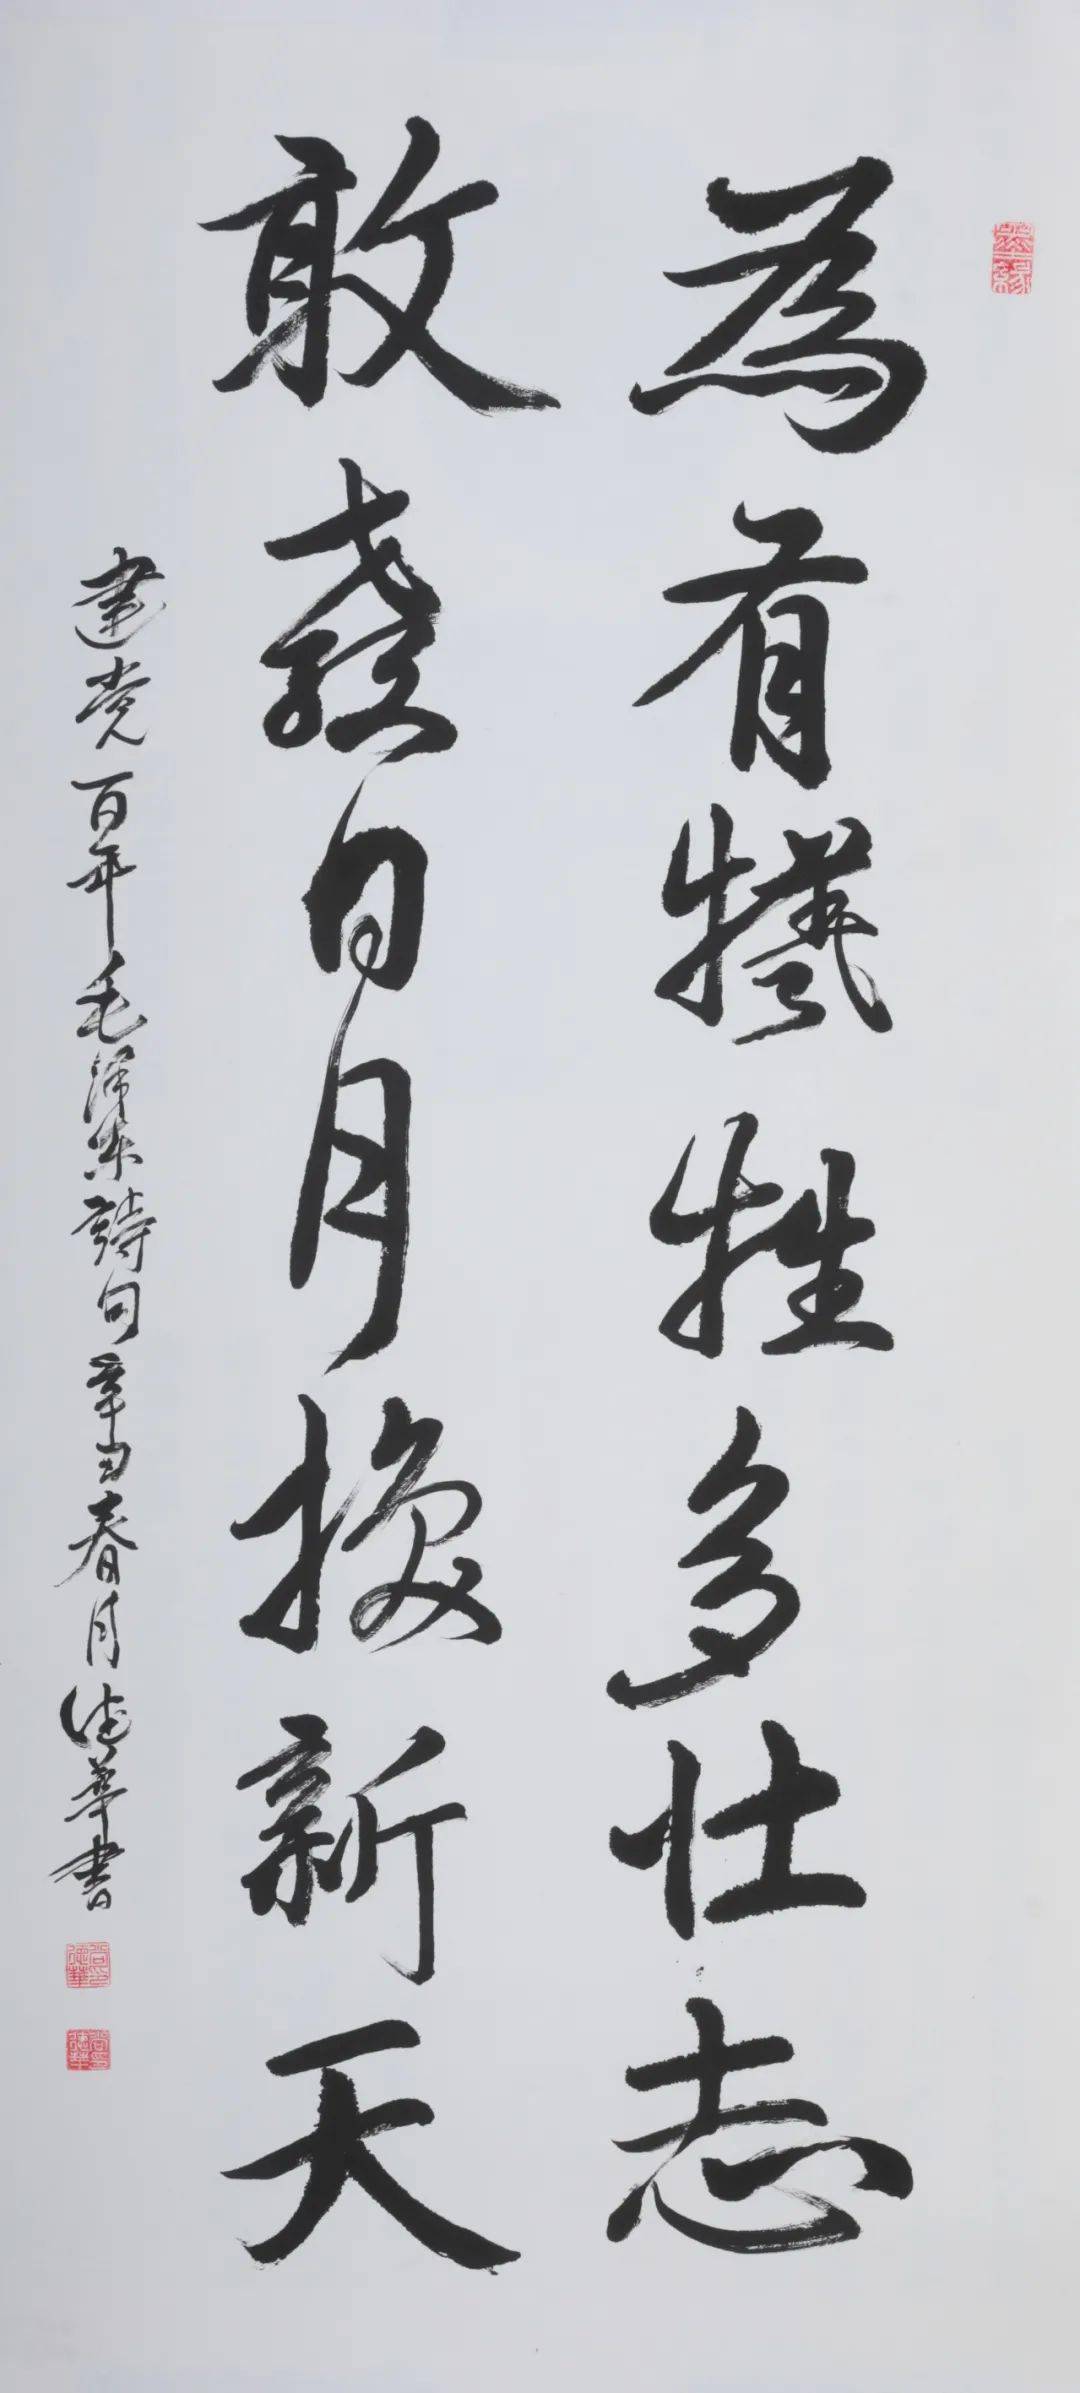 為有犧牲多壮志
敢教日月換新天
建党百年毛泽东詩句辛丑春月德華書
墨緣